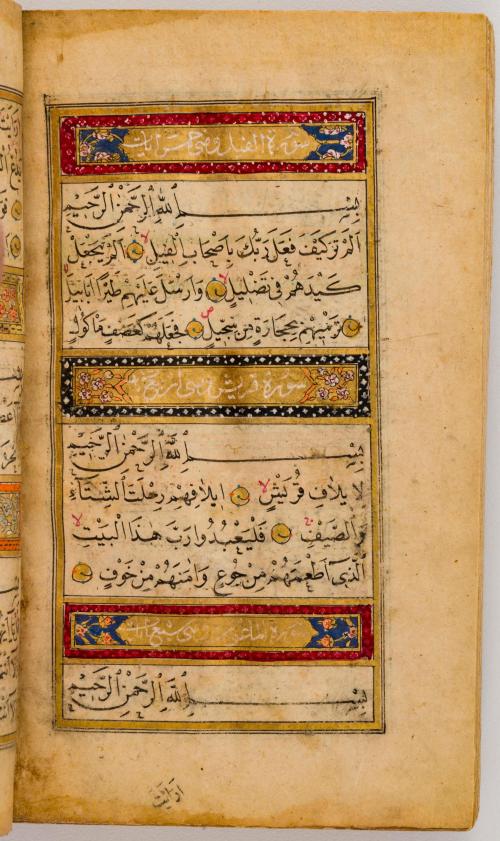 سورة الفيل وهي خمس ايات
بِسْمِ ٱللَّهِ ٱلرَّحْمٰنِ ٱلرَّحِيْمِ
اَلَمْ تَرَ كَيْفَ فَعَلَ رَبُّكَ بِاَصْحَابِ الْفِيْلِ لا اَلَمْ يَجْعَلْ
كَيْدَهُمْ فِى تَضْلِيْلٍ لا وَاَرْسَلَ عَلَيْهِمْ طَيْرًا اَبَابِيْلَ لا
تَرْمِيْهِمْ بِحِجَارَةٍ مِنْ سِجِّيْلٍ ص فَجَعَلَهُمْ كَعَصْفٍ مَاْكُوْلٍ
سورة قريش وهى اربع
بِسْمِ ٱللَّهِ ٱلرَّحْمٰنِ ٱلرَّحِيْمِ
لِاِيلَافِ قُرَيْشٍ لا اِيلَافِهِمْ رِحْلَتَ الشِّتَآءِ
وَالصَّيْفِ ج فَلْيَعْبُدُوا رَبَّ هٰذَا الْبَيْتِ لا
الَّذِى اَطْعَمَهُمْ مِنْ جُوْعٍ وَاٰمَنَهُمْ مِنْ خَوْفٍ
سورة الماعون وهي سبع ايات
بِسْمِ ٱللَّهِ ٱلرَّحْمٰنِ ٱلرَّحِيْمِ
ارايت